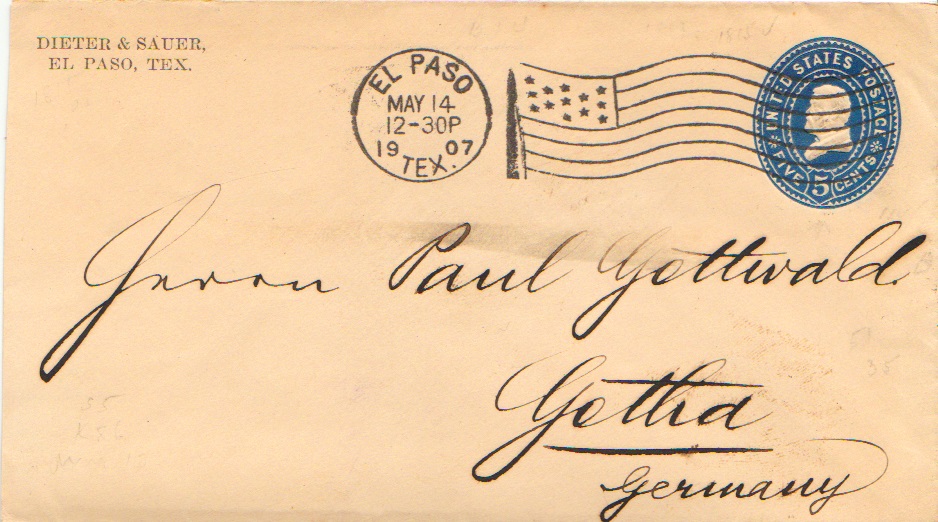 DIETER & SAUER,
EL PASO, TEX.
EL PASO
MAY 14
12-30P
19 07
TEX.
UNITED STATES POSTAGE
FIVE 5 CENTS
Herrn Paul Gottwald.
Gotha
Germany